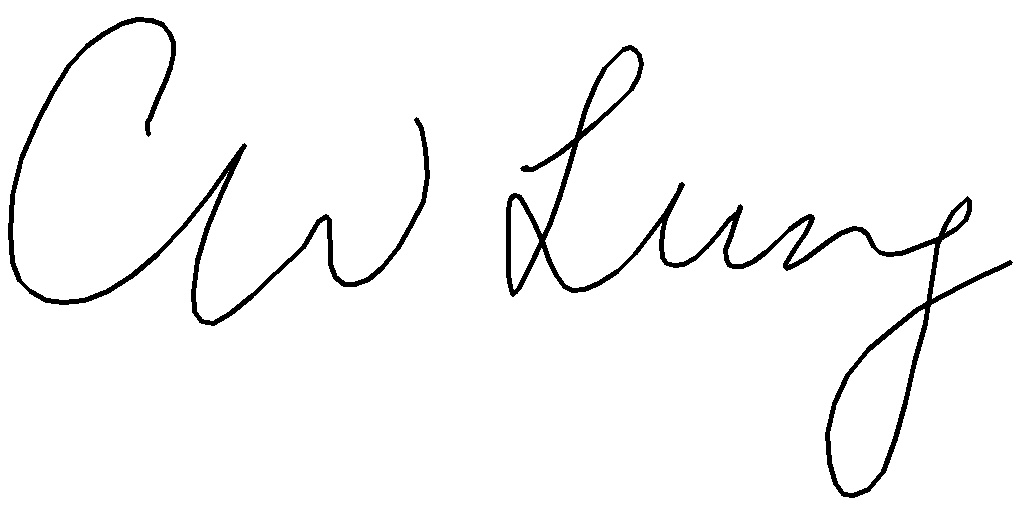 CW Lung